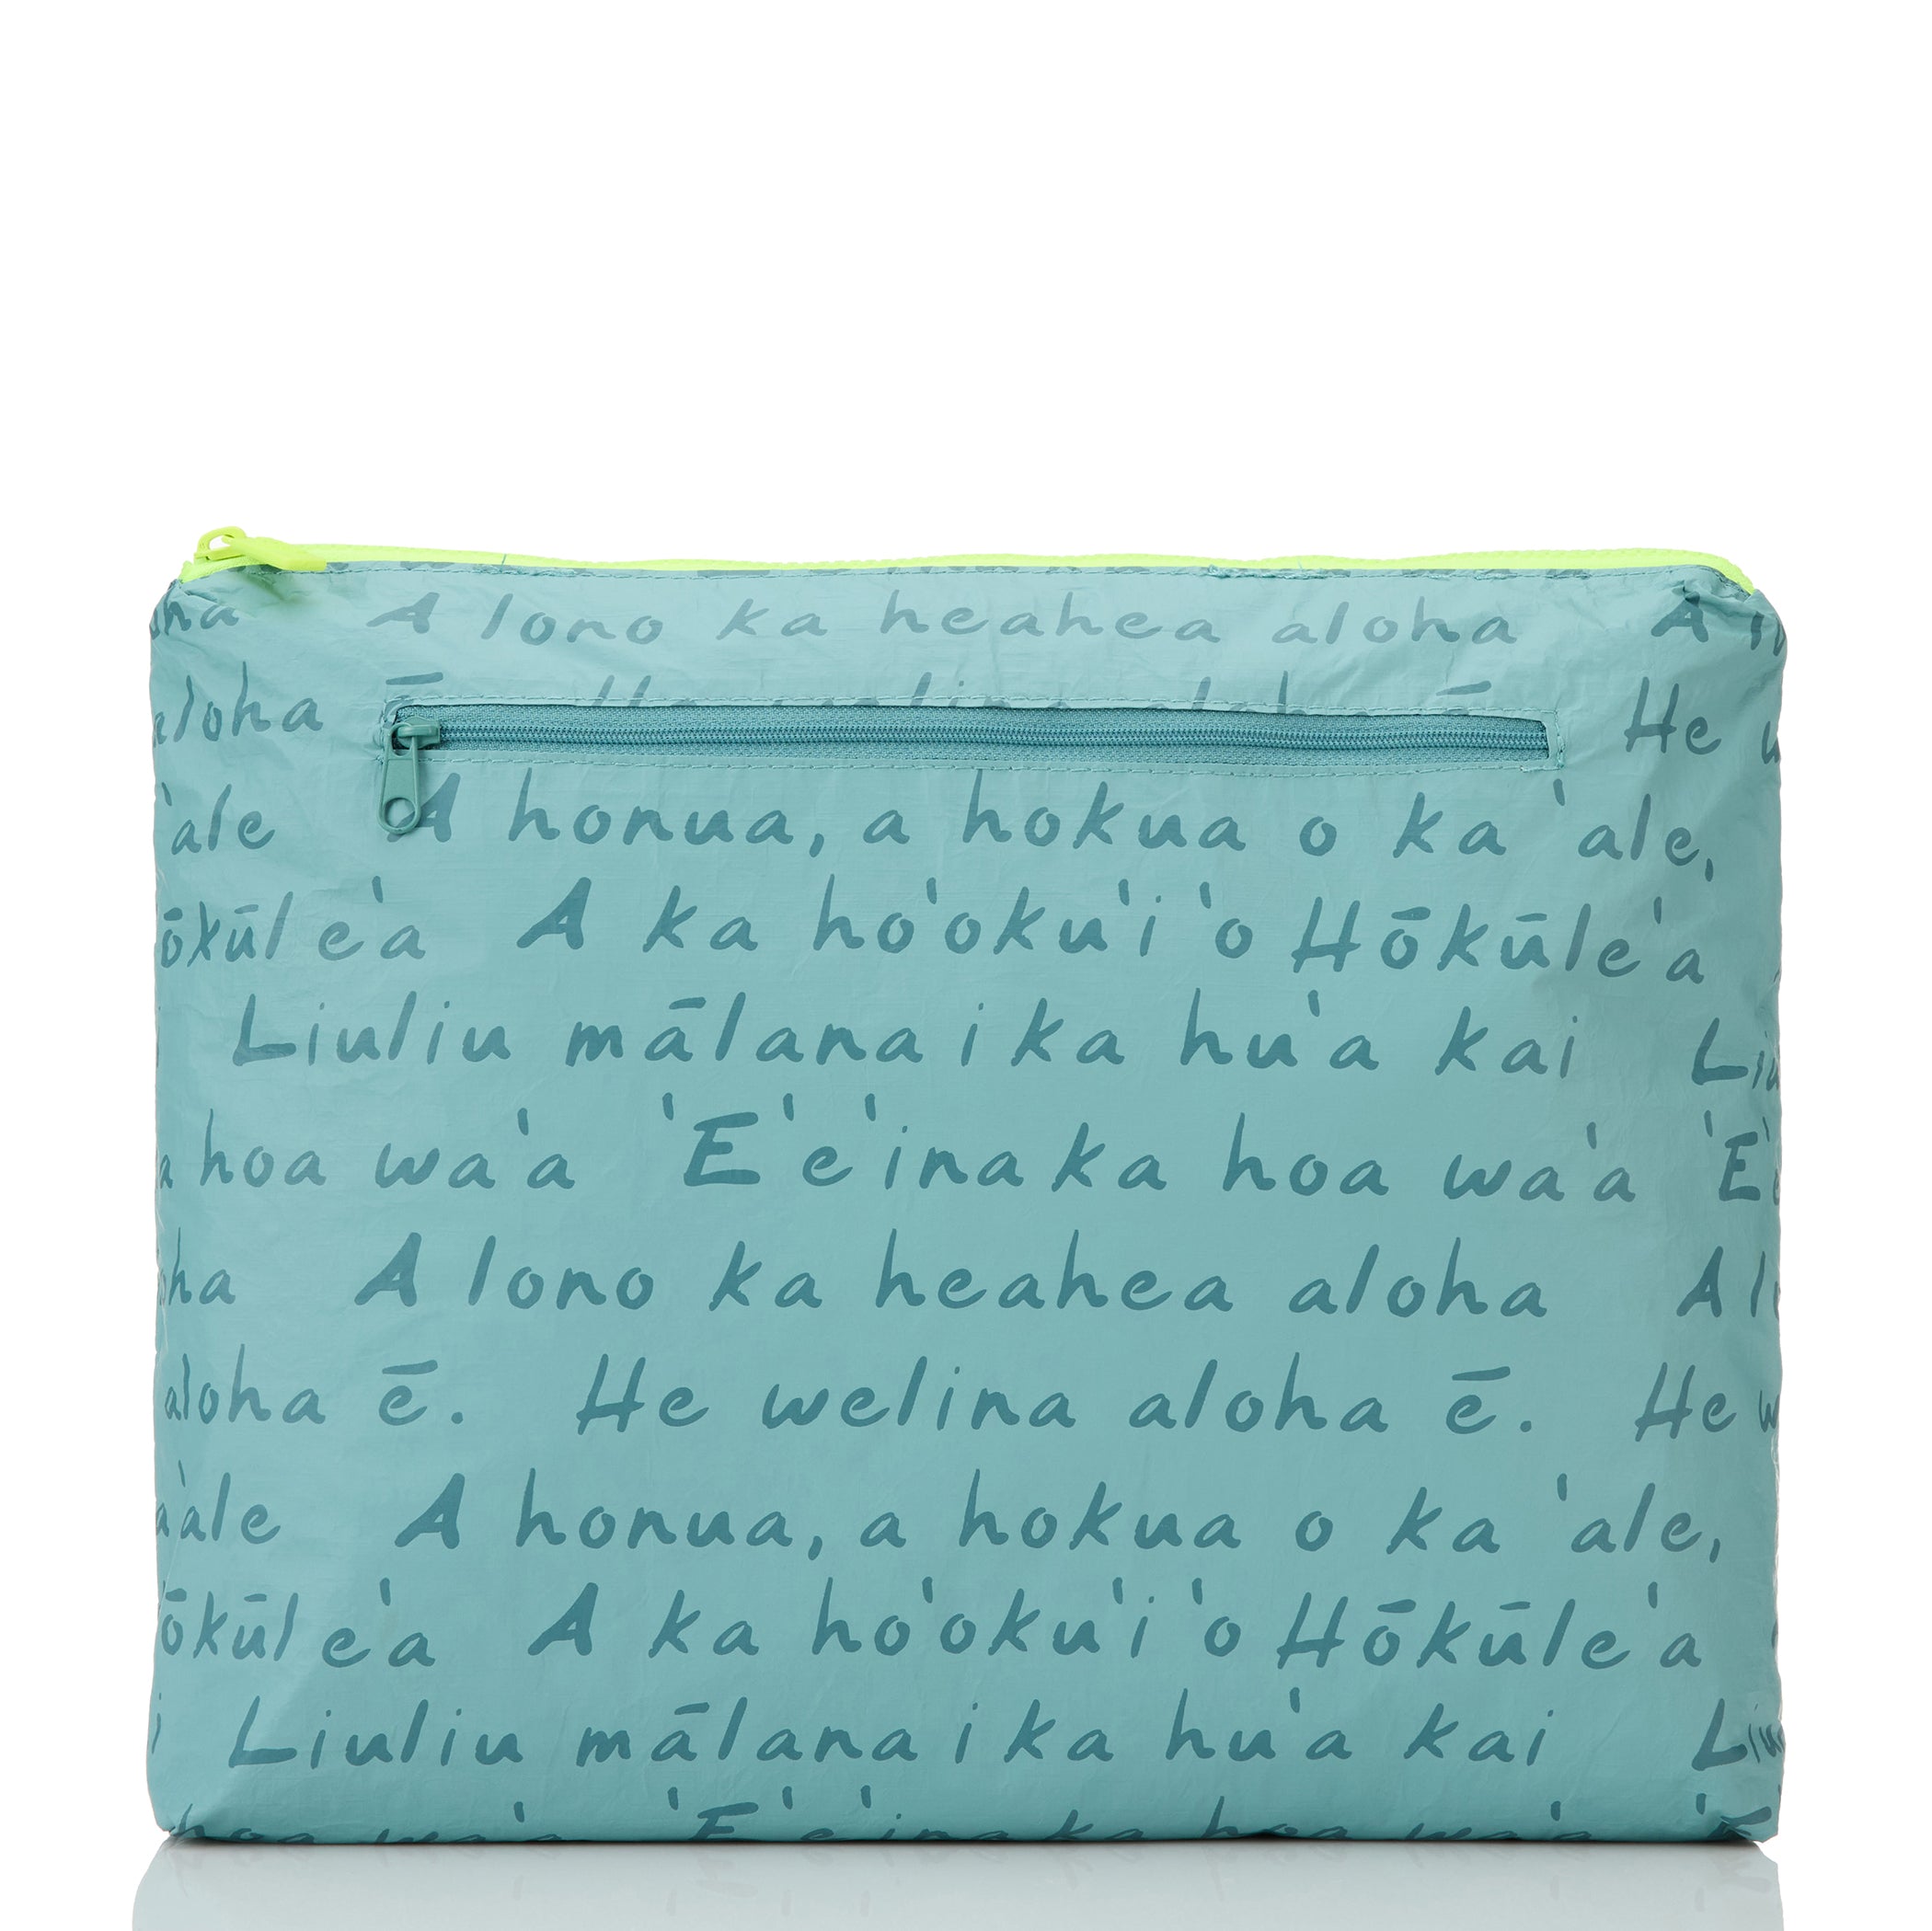 A lono ka heahea aloha A
aloha ē He welina aloha ē He
'ale A honua, a hokua o ka 'ale,
ōkūle'a A ka ho'oku'i 'o Hōkūle'a
Liuliu mālana i ka hu'a kai Liu
hoa wa'a 'E'e'ina ka hoa wa'a 'E'e
A lono ka heahea aloha A
aloha ē. He welina aloha ē. He
'ale A honua, a hokua o ka 'ale,
ōkūle'a A ka ho'oku'i 'o Hōkūle'a
Liuliu mālana i ka hu'a kai Liu
hoa wa'a 'E'e'ina ka hoa wa'a